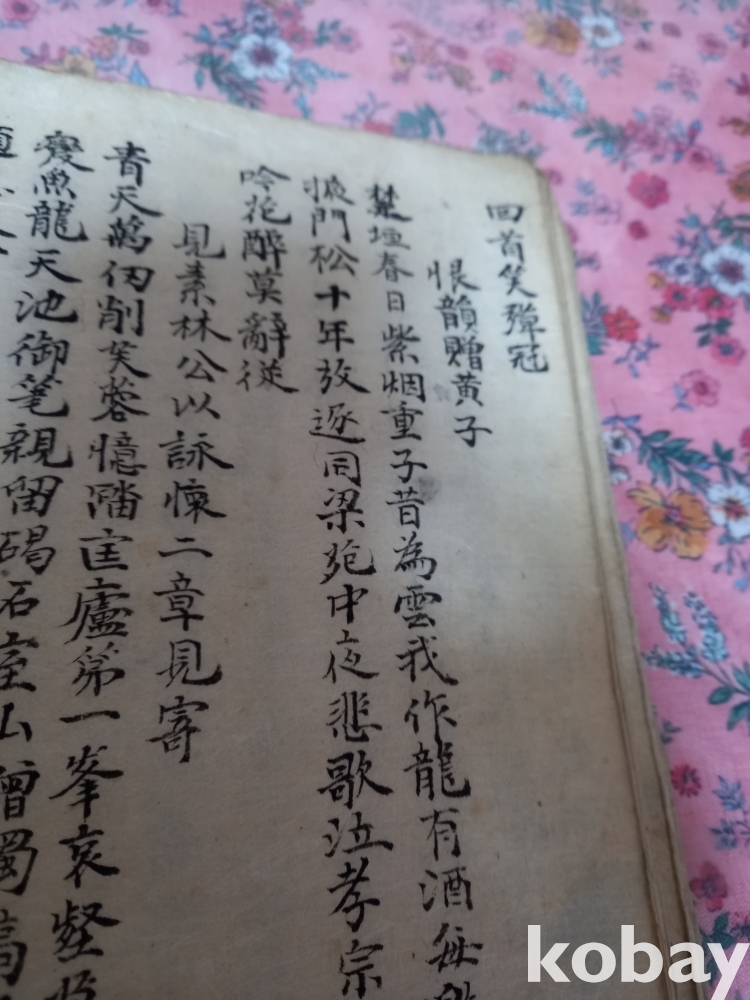 回首笑彈冠
恨韻贈黃子
楚垣春日紫烟重子昔為雲我作龍有酒每
掖門松十年放逐同梁苑中夜悲歌泣孝宗
吟花醉莫辭從
見素林公以詠懷二章見寄
青天萬仞削芙蓉憶踏匡廬第一峯哀壑
變魚龍天池御筆親留碣石室山僧獨高
kobay